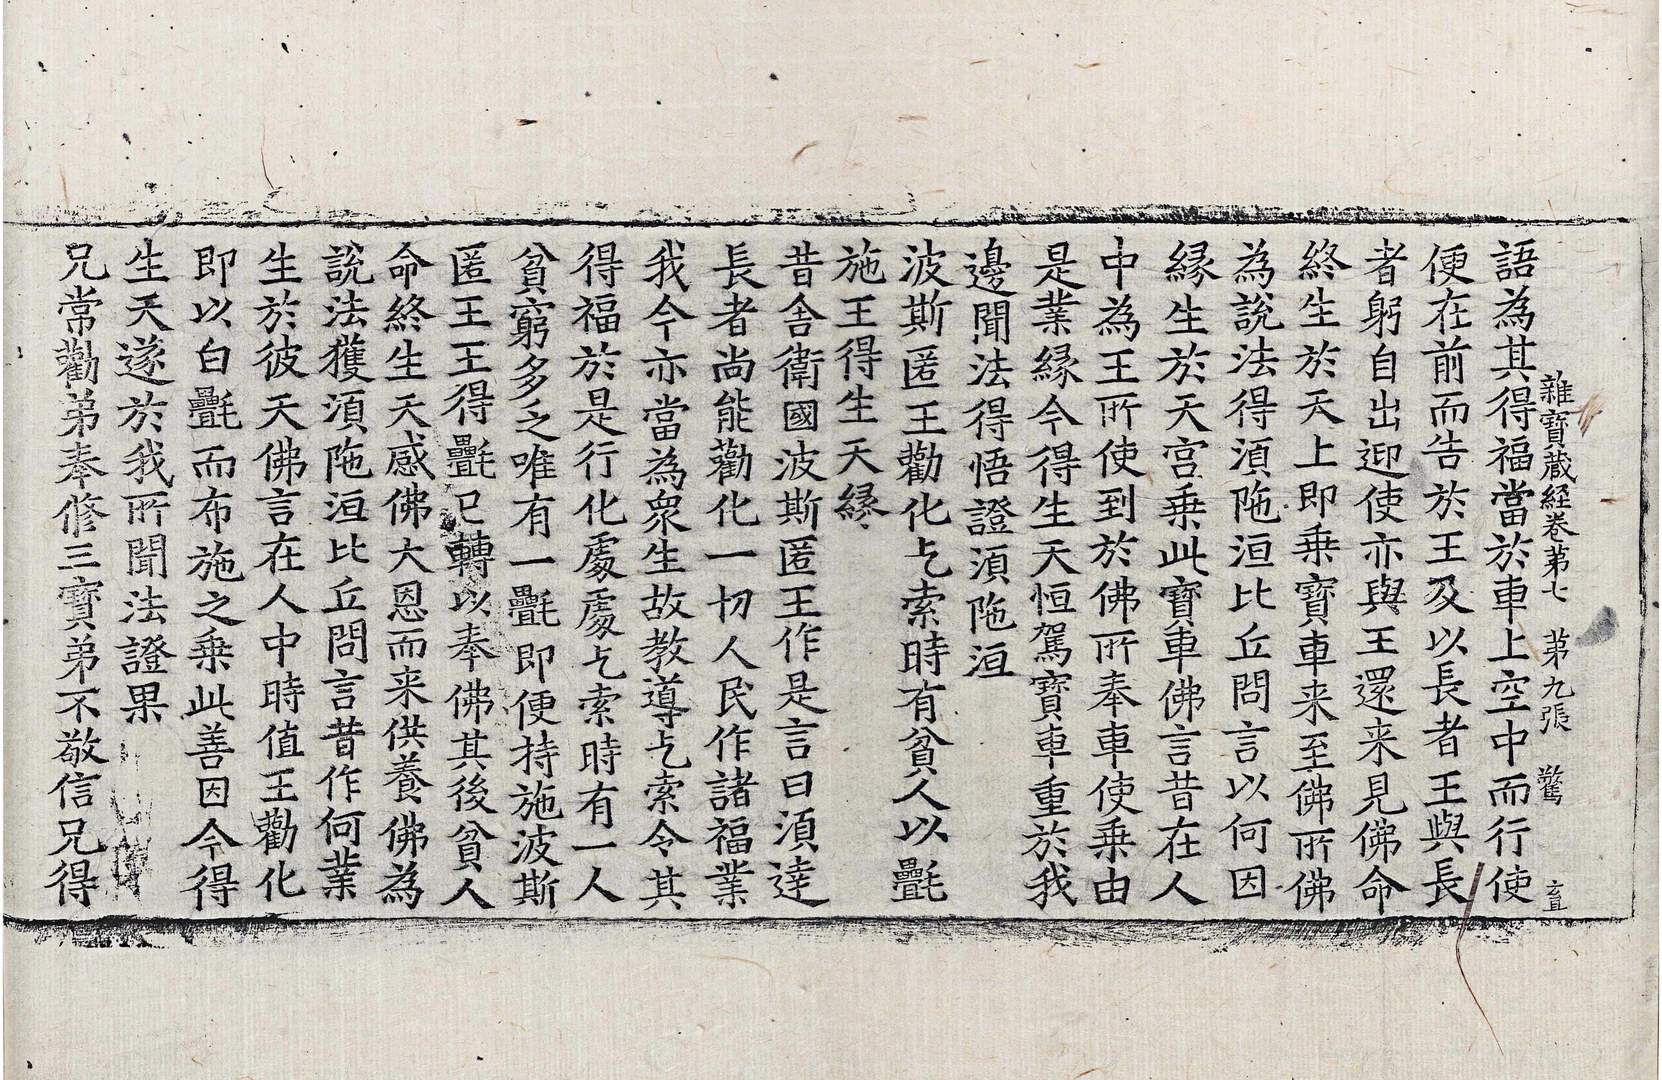 雜寶蔵経巻第七 第九張 驚
語為其得福當於車上空中而行使
便在前而告於王及以長者王與長
者躬自出迎使亦與王還来見佛命
終生於天上即乗寶車来至佛所佛
為說法得湏陁洹比丘問言以何因
縁生於天宫乗此寶車佛言昔在人
中為王所使到於佛所奉車使乗由
是業縁今得生天恒駕寶車重於我
邊聞法得悟證湏陁洹
波斯匿王勸化乞索時有貧人以㲲
施王得生天縁
昔舎衛國波斯匿王作是言曰湏達
長者尚能勸化一切人民作諸福業
我今亦當為衆生故教導乞索令其
得福於是行化處處乞索時有一人
貧窮多乏唯有一㲲即便持施波斯
匿王王得㲲已轉以奉佛其後貧人
命終生天感佛大恩而来供養佛為
說法獲湏陁洹比丘問言昔作何業
生於彼天佛言在人中時值王勸化
即以白㲲而布施之乗此善因今得
生天遂於我所聞法證果
兄常勸弟奉修三寶弟不敬信兄得